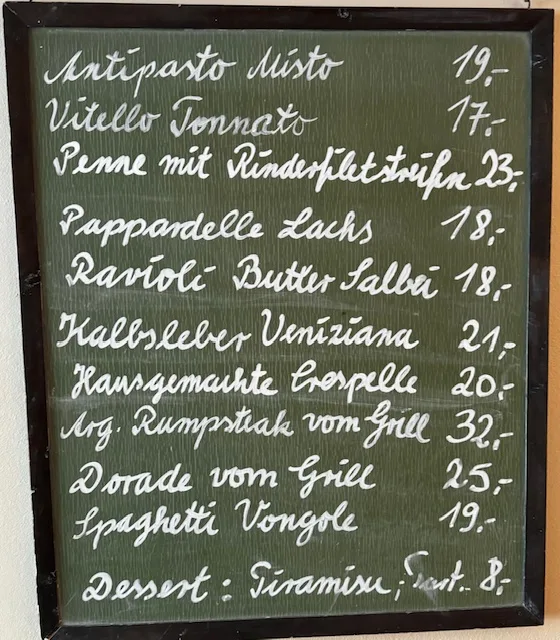 Antipasto Misto 19,-
Vitello Tonnato 17,-
Penne mit Rinderfiletstreifen 23,-
Pappardelle Lachs 18,-
Ravioli Butter Salbei 18,-
Kalbsleber Veniziana 21,-
Hausgemachte Crespelle 20,-
Arg. Rumpsteak vom Grill 32,-
Dorade vom Grill 25,-
Spaghetti Vongole 19,-
Dessert: Tiramisu, 8,-